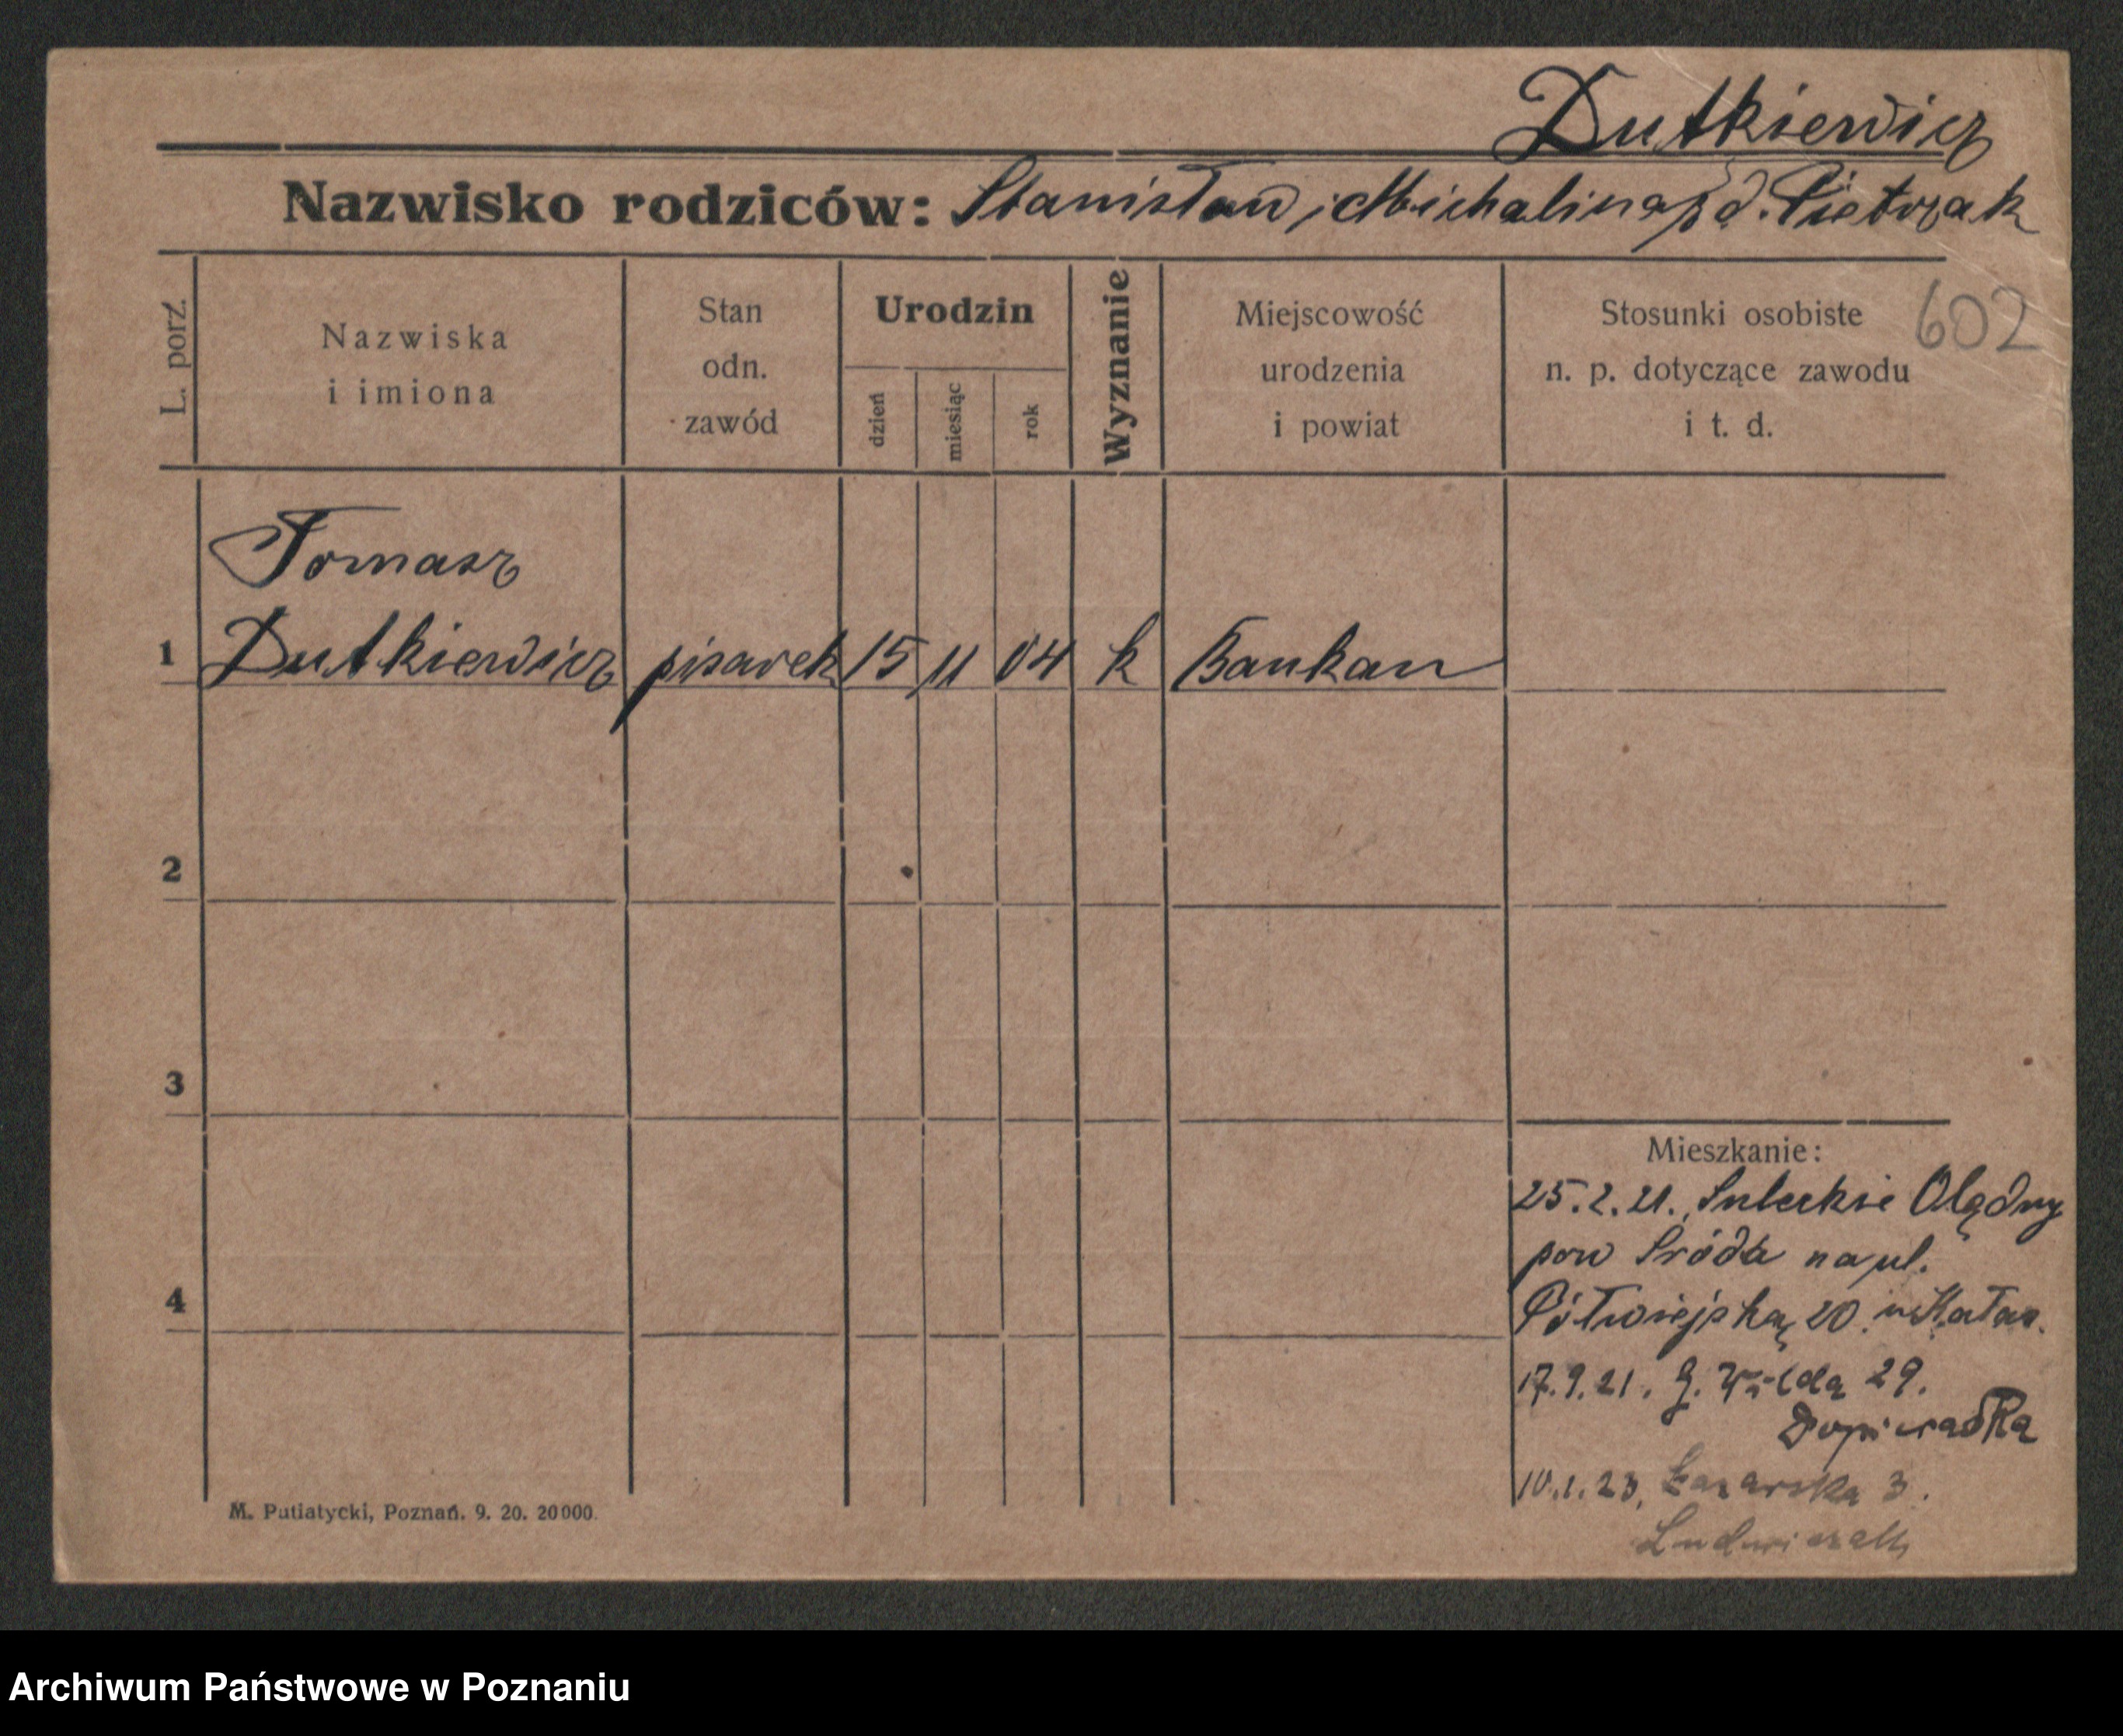 Dutkiewicz
Nazwisko rodziców: Stanisław i Michalina z d. Pietrzak
L. porz.
Nazwiska
i imiona
Stan
odn.
zawód
Urodzin
dzień
miesiąc
rok
Wyznanie
Miejscowość
urodzenia
i powiat
Stosunki osobiste
n. p. dotyczące zawodu
i t. d.
602
Tomasz
1 Dutkiewicz pisarek 15 11 04 k Baukau
2
3
4
Mieszkanie:
25.2.21.
pow Środa na ul.
Półwiejską 20.
17.9.21. G. Wilda 29.
10.1.23, Łazarska 3.
M. Putiatycki, Poznań. 9. 20. 20000.
Archiwum Państwowe w Poznaniu